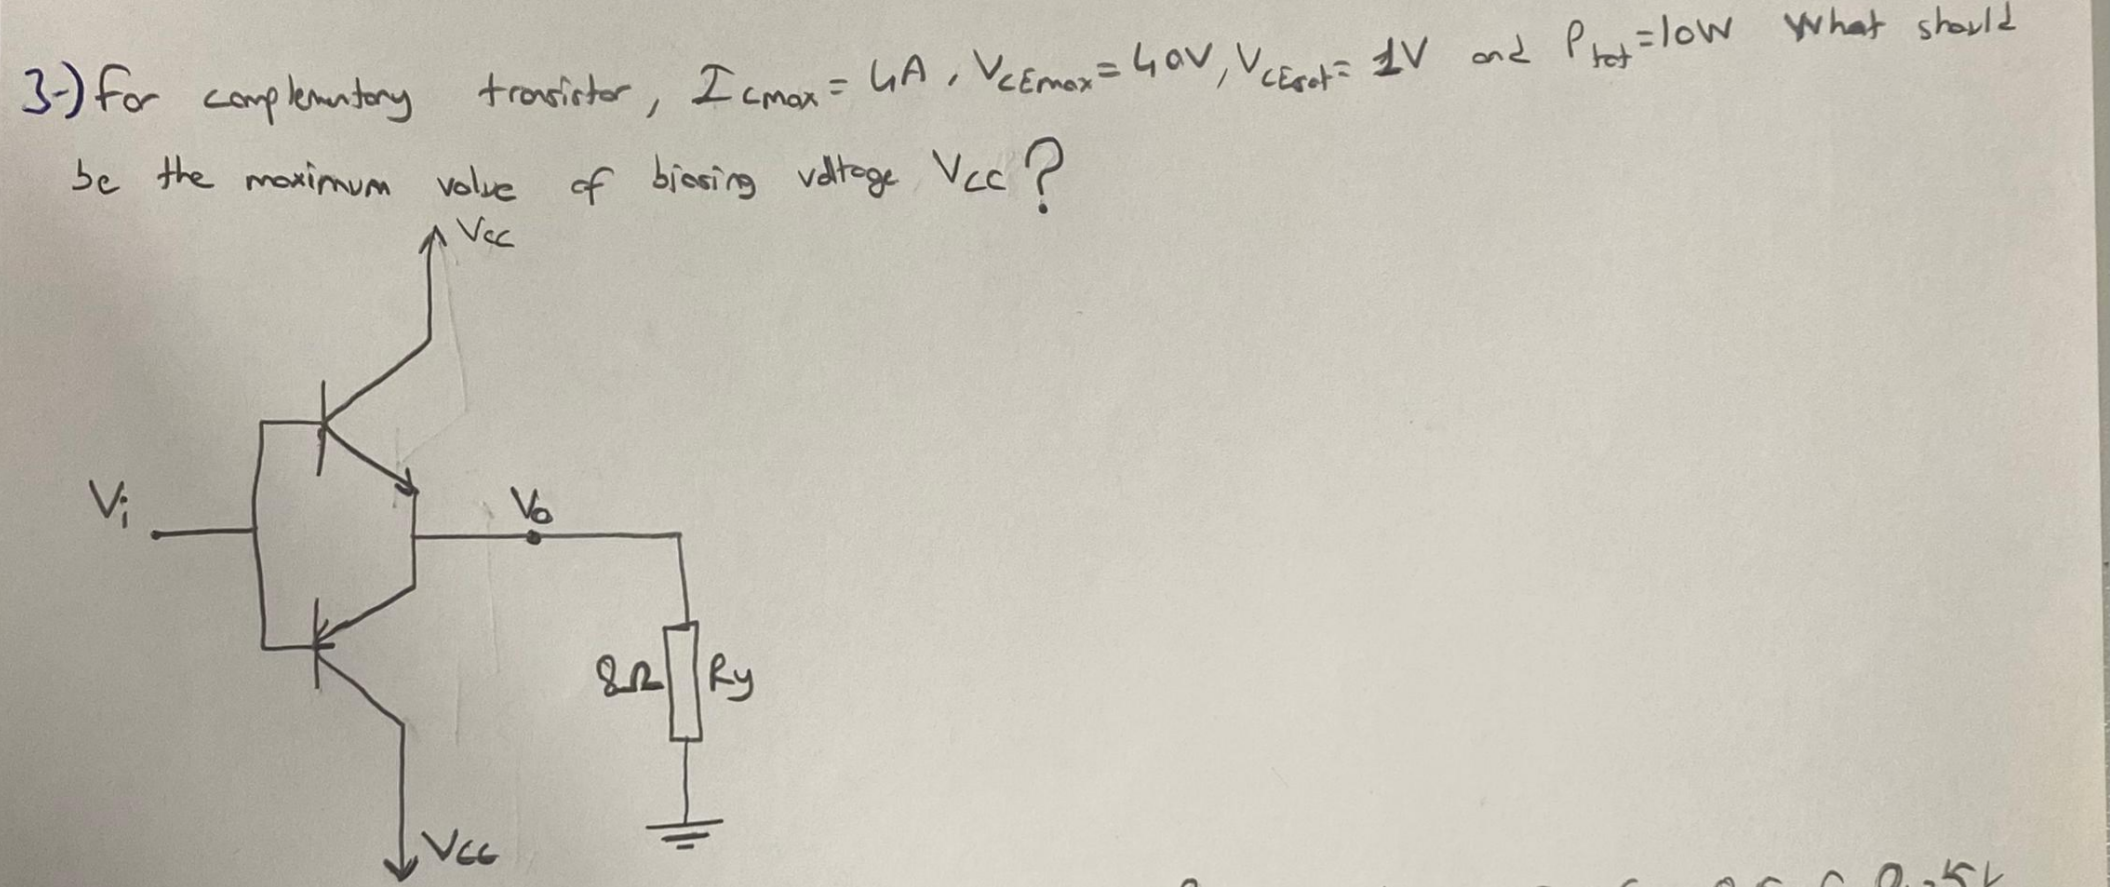 3-) For complementary transistor, ICmax = 4A, VCEmax = 40V, VCEsat = 1V and Ptot = 10W What should
be the maximum value of biasing voltage VCC?
VCC
Vi
Vo
8Ω Ry
VCC